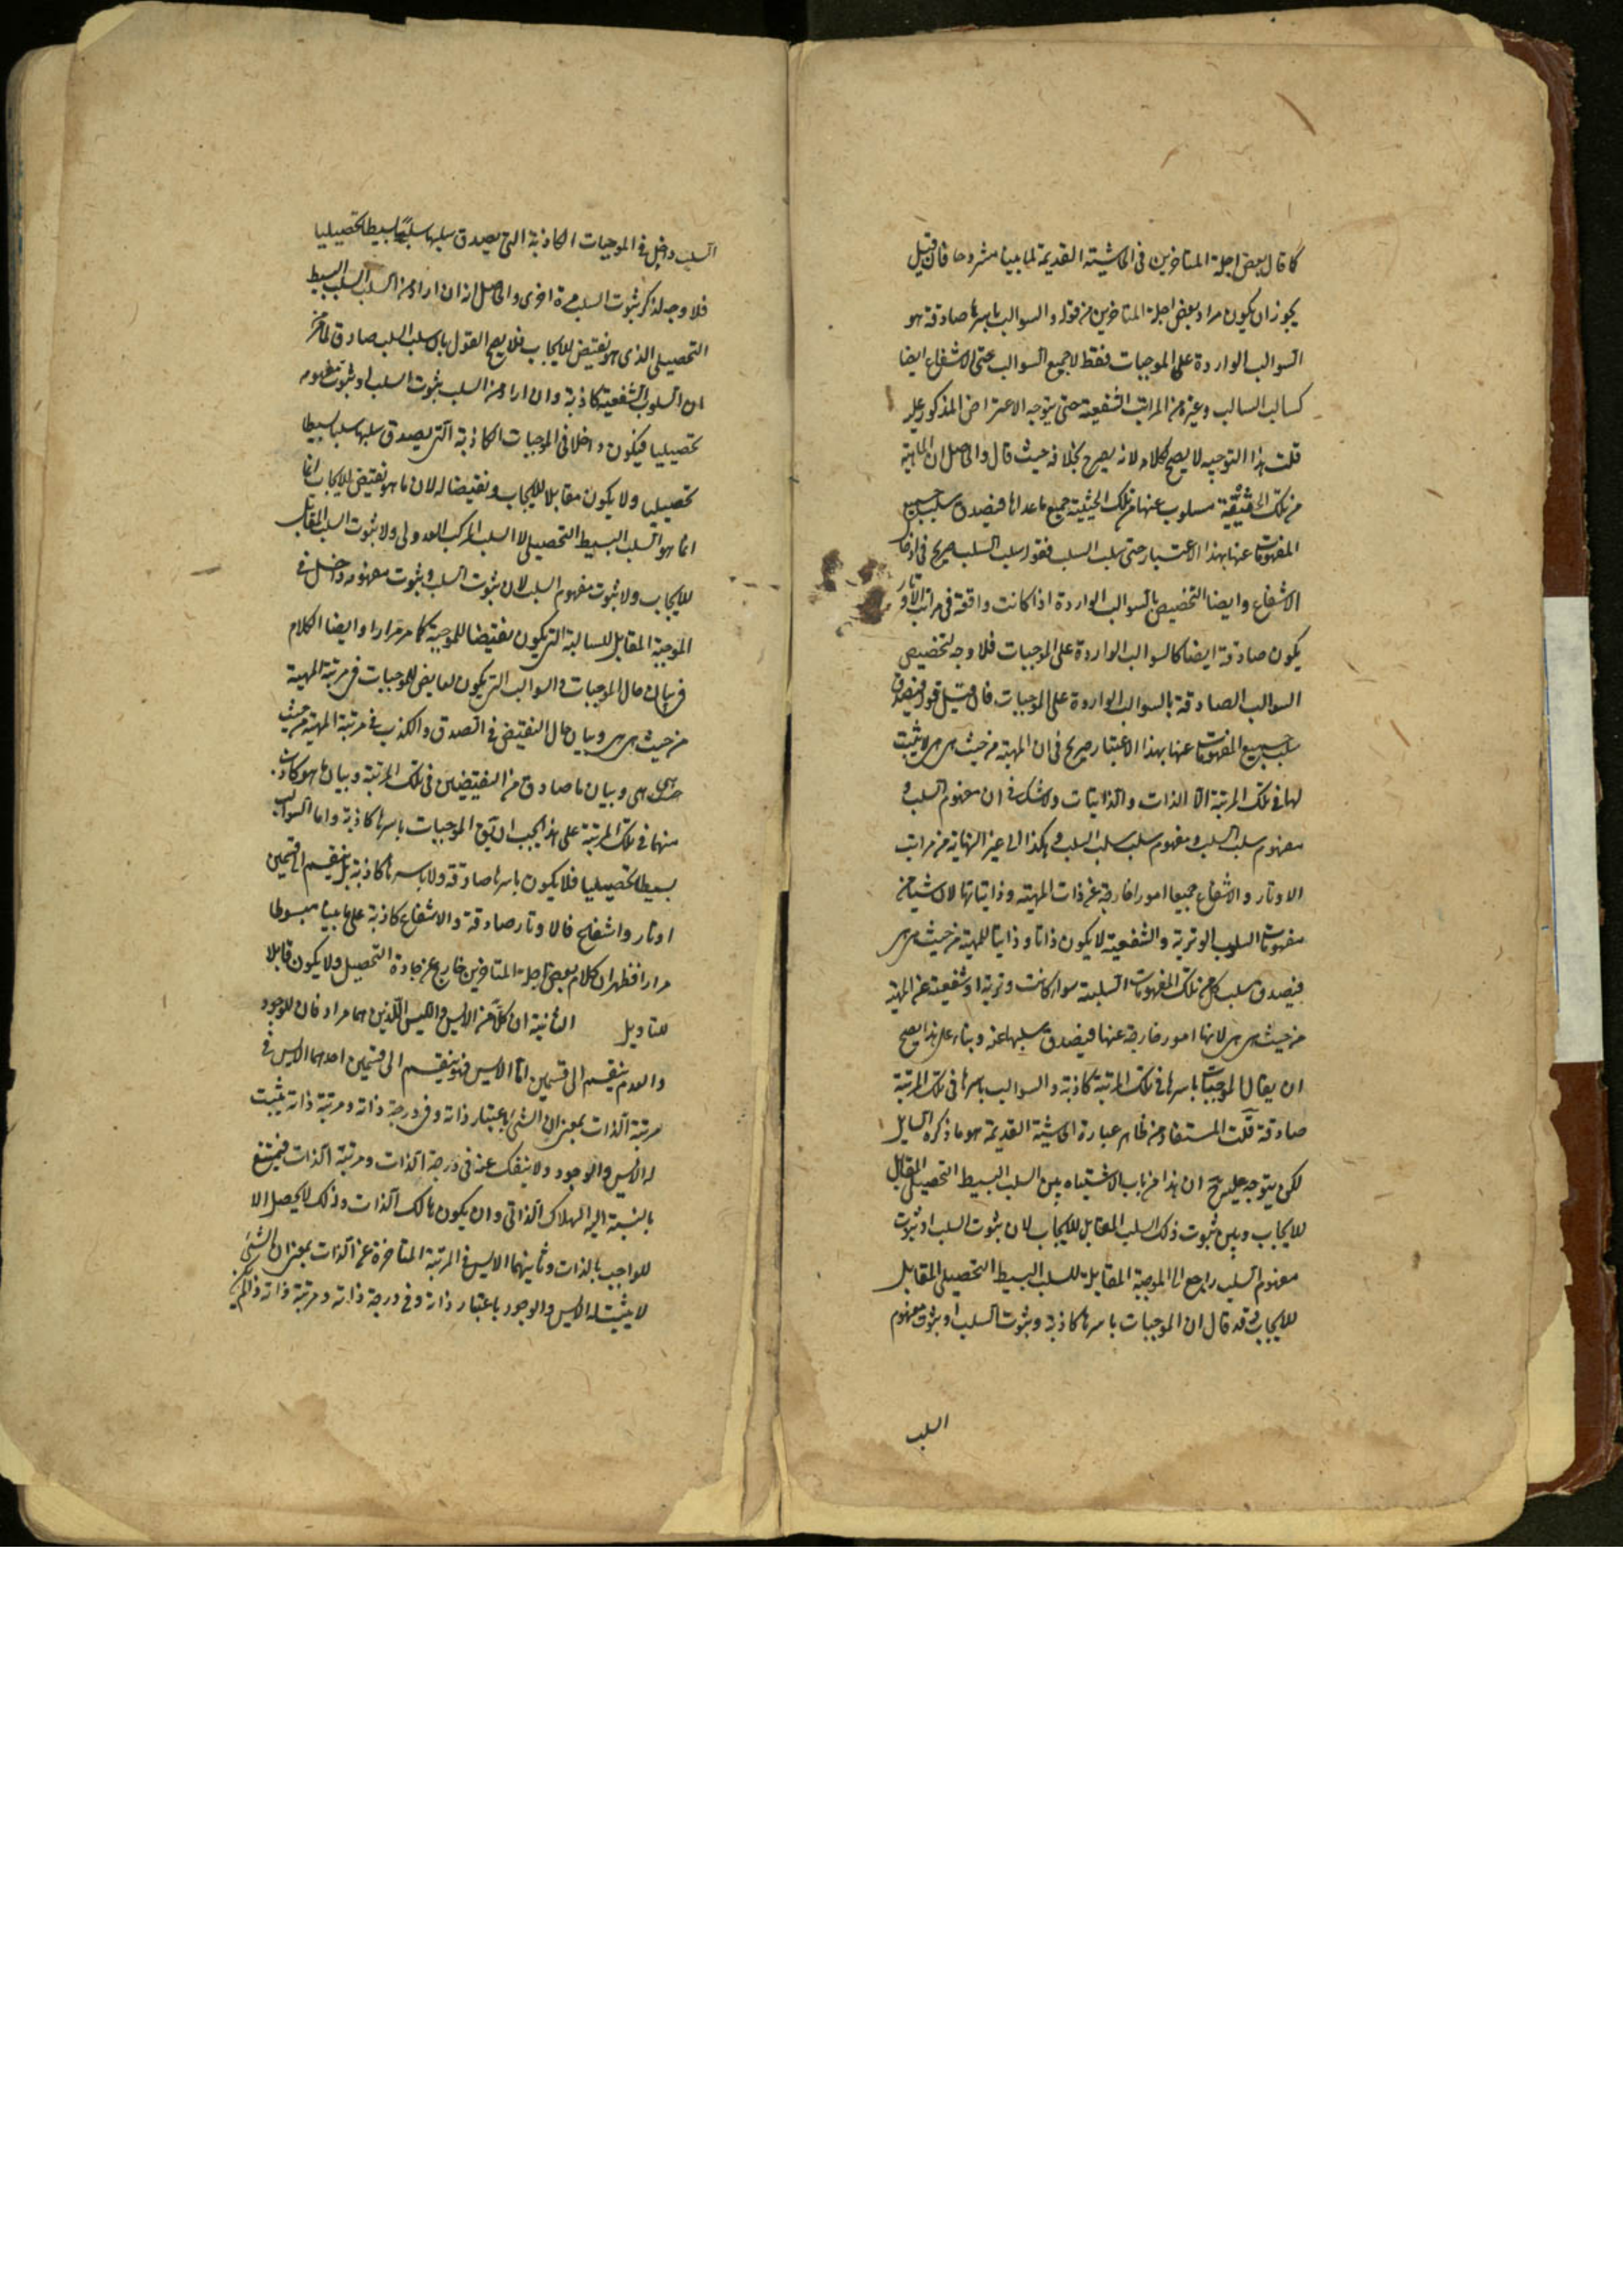 كما قال بعض اجلة المتاخرين فى الحاشية القديمة لما بينا مشروحا فان قيل
يجوز ان يكون مراد بعض اجلة المتاخرين من قوله والسوالب باسرها صادقة هو
السوالب الواردة على الموجبات فقط لا جميع السوالب حتى الاشفاع ايضا
كسالب السالب وغيره من المراتب الشفعية حتى يتوجه الاعتراض المذكور عليه
قلت هذا التوجيه لا يصح لكلامه لانه يصرح بخلافه حيث قال والحاصل ان الماهية
من تلك الحيثية مسلوب عنها من تلك الحيثية جميع ما عداها فيصدق سلب جميع
المفهومات عنها بهذا الاعتبار حتى سلب السلب فقوله سلب السلب صريح فى ادخال
الاشفاع وايضا التخصيص بالسوالب الواردة اذا كانت واقعة فى مراتب الاوتار
يكون صادقة ايضا كالسوالب الواردة على الموجبات فلا وجه لتخصيص
السوالب الصادقة بالسوالب الواردة على الموجبات فان قيل قوله فيصدق
سلب جميع المفهومات عنها بهذا الاعتبار صريح فى ان المهية من حيث هى هى لا يثبت
لها فى تلك المرتبة الا الذات والذاتيات ولا شك فى ان مفهوم السلب و
مفهوم سلب السلب ومفهوم سلب سلب السلب وهكذا الى غير النهاية من مراتب
الاوتار والاشفاع جميعا امور خارجة عن ذات المهية وذاتياتها لان شيئا من
مفهومات السلوب الوترية والشفعية لا يكون ذاتا وذاتيا للمهية من حيث هى هى
فيصدق سلب كل من تلك المفهومات السلبية سواء كانت وترية او شفعية عن المهية
من حيث هى هى لانها امور خارجة عنها فيصدق سلبها عنه وبناء على هذا يصح
ان يقال الموجبات باسرها فى تلك المرتبة كاذبة والسوالب باسرها فى تلك المرتبة
صادقة قلت المستفاد من ظاهر عبارة الحاشية القديمة هو ما ذكره السايل
لكن يتوجه عليه ح ان هذا من باب الاشتباه بين السلب البسيط التحصيلى المقابل
للايجاب وبين ثبوت ذلك السلب المقابل للايجاب لان ثبوت السلب او ثبوت
مفهوم السلب راجع الى الموجبة المقابلة للسلب البسيط التحصيلى المقابل
للايجاب وقد قال ان الموجبات باسرها كاذبة وثبوت السلب او ثبوت مفهوم
السلب
السلب داخل فى الموجبات الكاذبة التى يصدق سلبها سلبا بسيطا تحصيليا
فلا وجه لذكر ثبوت السلب مرة اخرى والحاصل انه ان اراد من السلب السلب البسيط
التحصيلى الذى هو نقيض للايجاب فلا يصح القول بان سلب السلب صادق لما مر من
ان السلوب الشفعية كاذبة وان اراد من السلب ثبوت السلب او ثبوت مفهومه
تحصيليا فيكون داخلا فى الموجبات الكاذبة التى يصدق سلبها سلبا بسيطا
تحصيليا ولا يكون مقابلا للايجاب ونقيضا له لان ما هو نقيض للايجاب انما
انما هو السلب البسيط التحصيلى لا السلب المركب العدولى ولا ثبوت السلب المقابل
للايجاب ولا ثبوت مفهوم السلب لان ثبوت السلب وثبوت مفهومه داخل فى
الموجبة المقابل للسالبة التى يكون نقيضا للموجبة كما مر مرارا وايضا الكلام
فى بيان حال الموجبات والسوالب التى يكون نقايض للموجبات فى مرتبة المهية
من حيث هى هى وبيان حال النقيض فى الصدق والكذب فى مرتبة المهية من حيث
هى هى وبيان ما صادق من النقيضين فى تلك المرتبة وبيان ما هو كاذب
منهما فى تلك المرتبة على هذا يجب ان يق الموجبات باسرها كاذبة واما السوالب
بسيطا تحصيليا فلا يكون باسرها صادقة ولا باسرها كاذبة بل ينقسم الى قسمين
اوتار واشفاع فالاوتار صادقة والاشفاع كاذبة على ما بينا مبسوطا
مرارا فظهر ان كلام بعض اجلة المتاخرين خارج عن جادة التحصيل ولا يكون قابلا
للتاويل الثانية ان كلا من الايس والليس اللذين هما مرادفان للوجود
والعدم ينقسم الى قسمين اما الايس فهو ينقسم الى قسمين احدهما الايس فى
مرتبة الذات بمعنى ان الشئ باعتبار ذاته وفى درجة ذاته ومرتبة ذاته يثبت
له الايس والوجود ولا ينفك عنه فى درجة الذات ومرتبة الذات فيمتنع
بالنسبة اليه الهلاك الذاتى وان يكون هالك الذات وذلك لا يحصل الا
للواجب بالذات وثانيهما الايس فى المرتبة المتاخرة عن الذات بمعنى ان الشئ
لا يثبت له الايس والوجود باعتبار ذاته وفى درجة ذاته ومرتبة ذاته